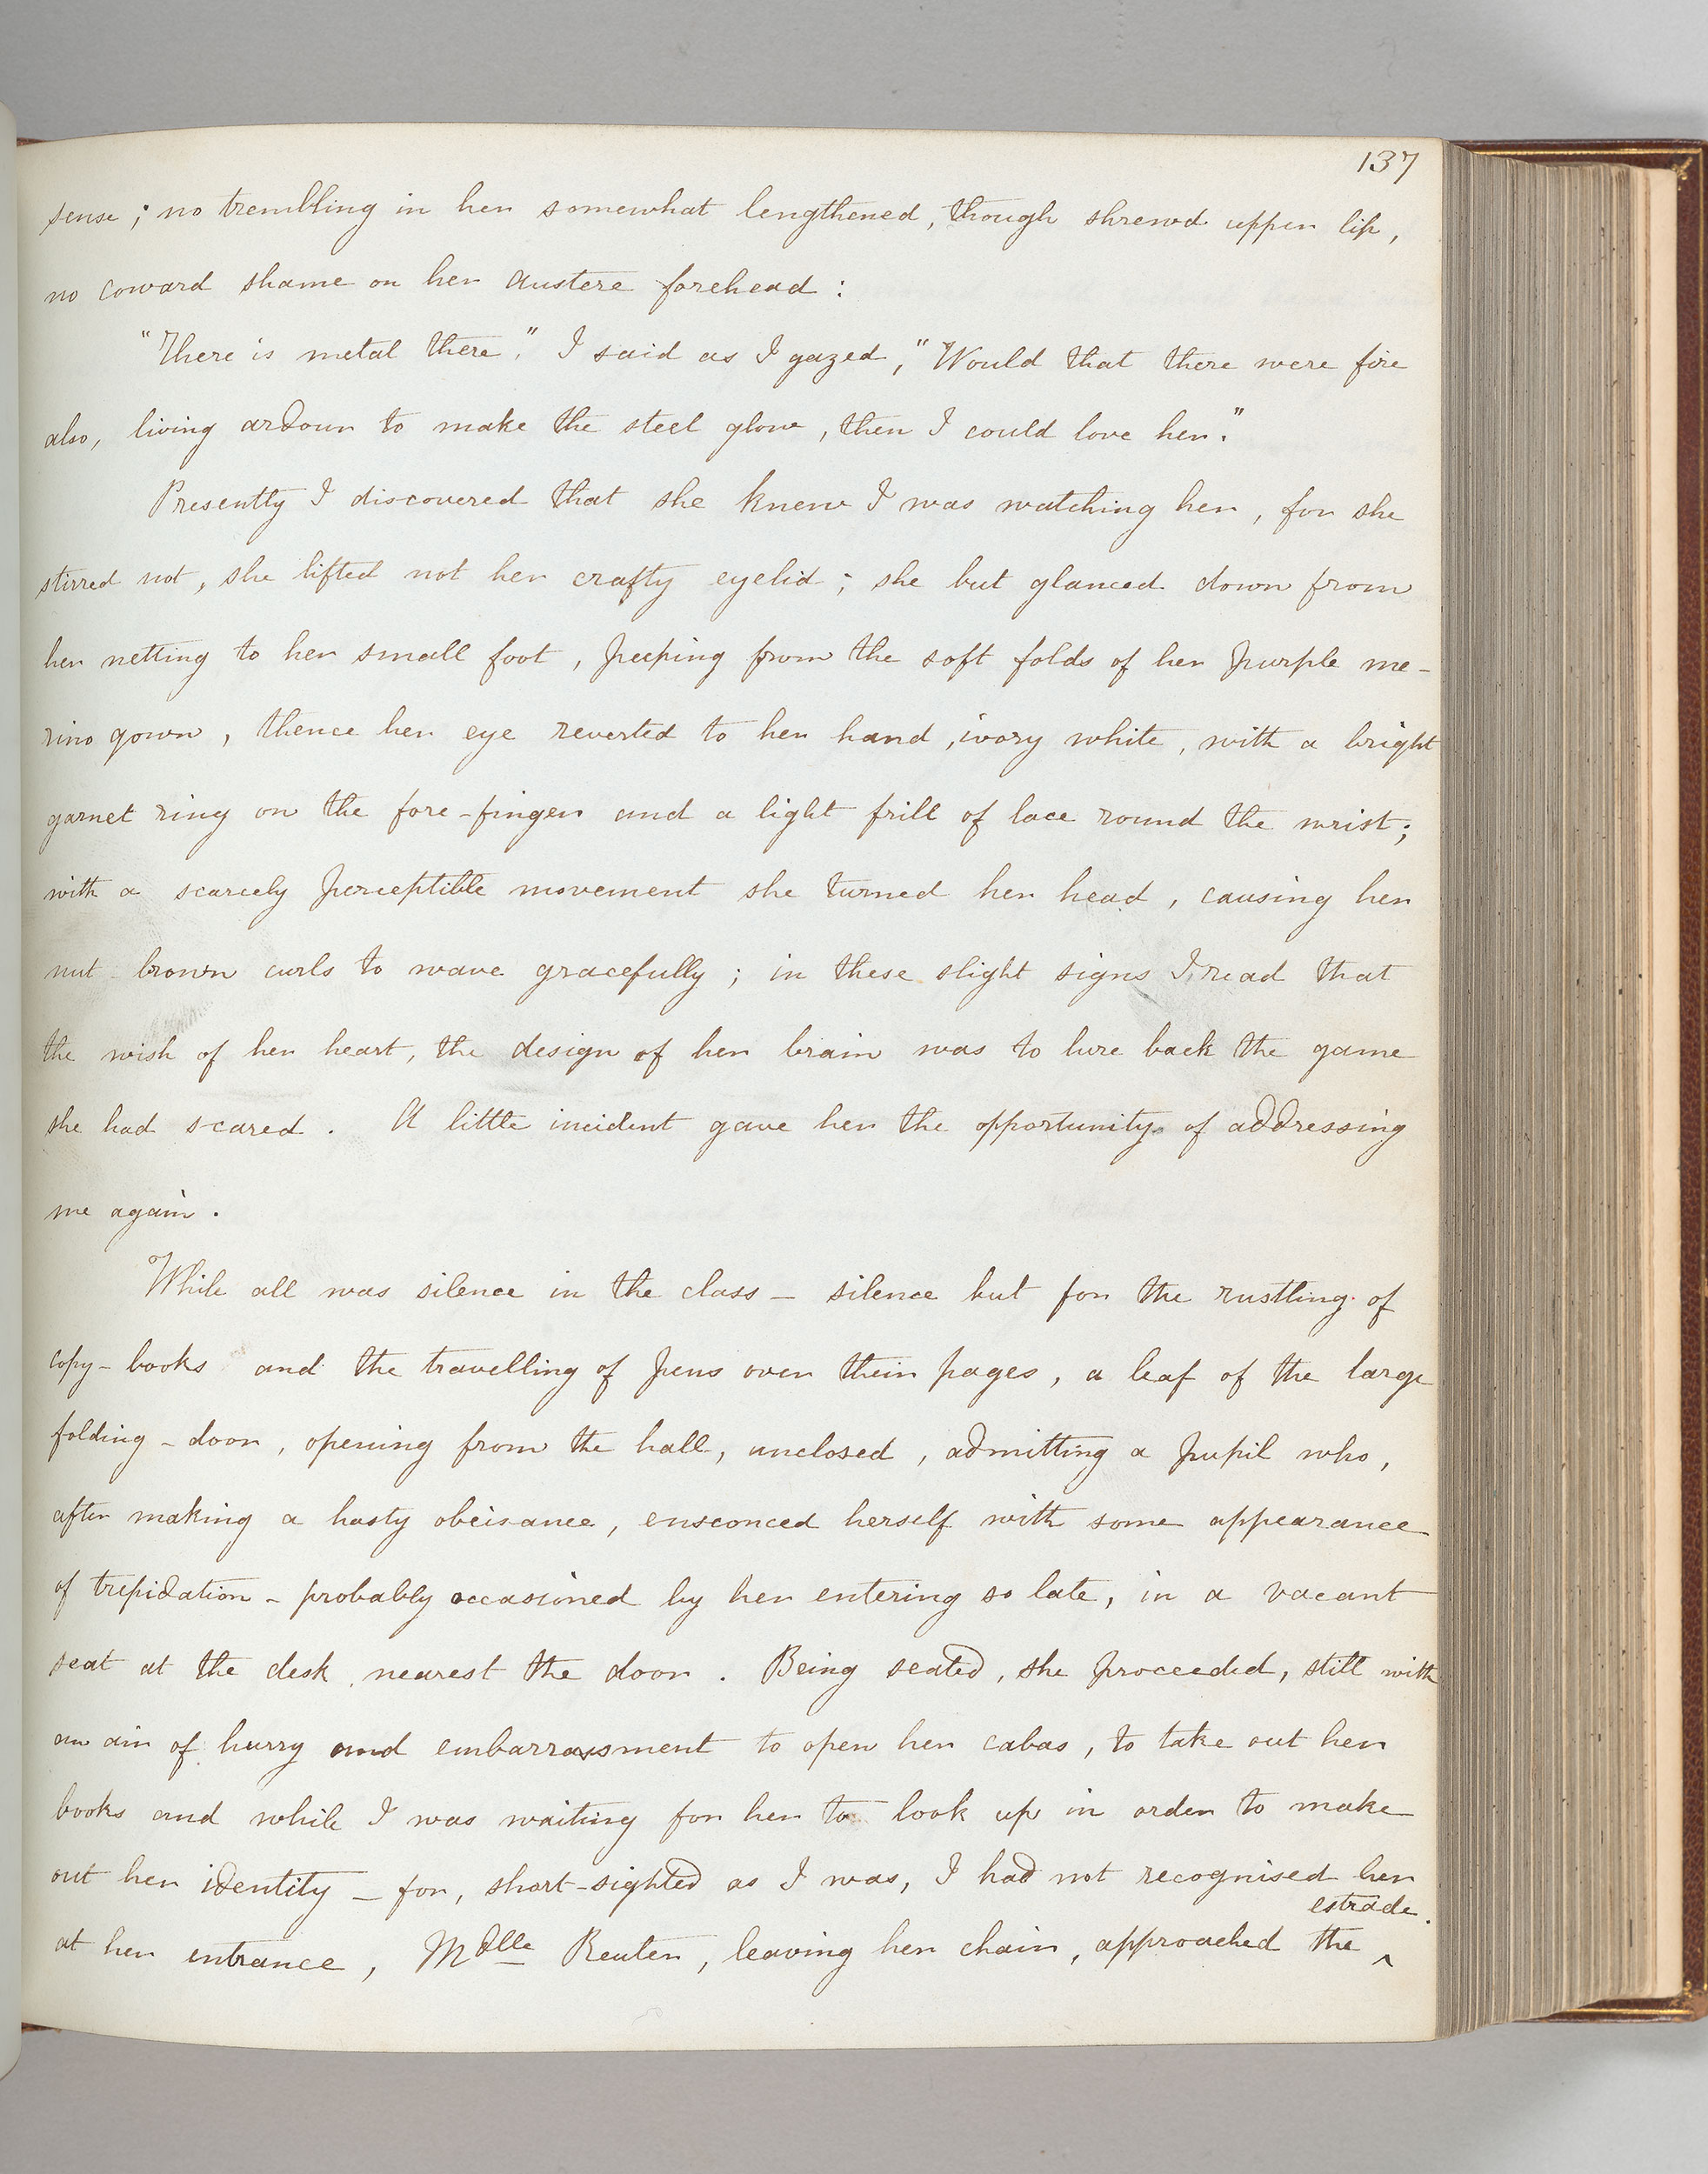 137
sense ; no trembling in her somewhat lengthened, though shrewd upper lip,
no coward shame on her austere forehead :
"There is metal there," I said as I gazed, "Would that there were fire
also, living ardour to make the steel glow, then I could love her."
Presently I discovered that she knew I was watching her, for she
stirred not, she lifted not her crafty eyelid ; she but glanced down from
her netting to her small foot, peeping from the soft folds of her purple me-
rino gown, thence her eye reverted to her hand, ivory white, with a bright
garnet ring on the fore-finger and a light frill of lace round the wrist;
with a scarcely perceptible movement she turned her head, causing her
nut brown curls to wave gracefully ; in these slight signs I read that
the wish of her heart, the design of her brain was to lure back the game
she had scared. A little incident gave her the opportunity of addressing
me again.
While all was silence in the class – silence but for the rustling of
copy-books and the travelling of pens over their pages, a leaf of the large
folding-door, opening from the hall, unclosed, admitting a pupil who,
after making a hasty obeisance, ensconced herself with some appearance
of trepidation – probably occasioned by her entering so late, in a vacant
seat at the desk nearest the door. Being seated, she proceeded, still with
an air of hurry and embarrassment to open her cabas, to take out her
books and while I was waiting for her to look up in order to make
out her identity – for, short-sighted as I was, I had not recognised her
at her entrance, Mdlle Reuter, leaving her chair, approached the ^ estrade.